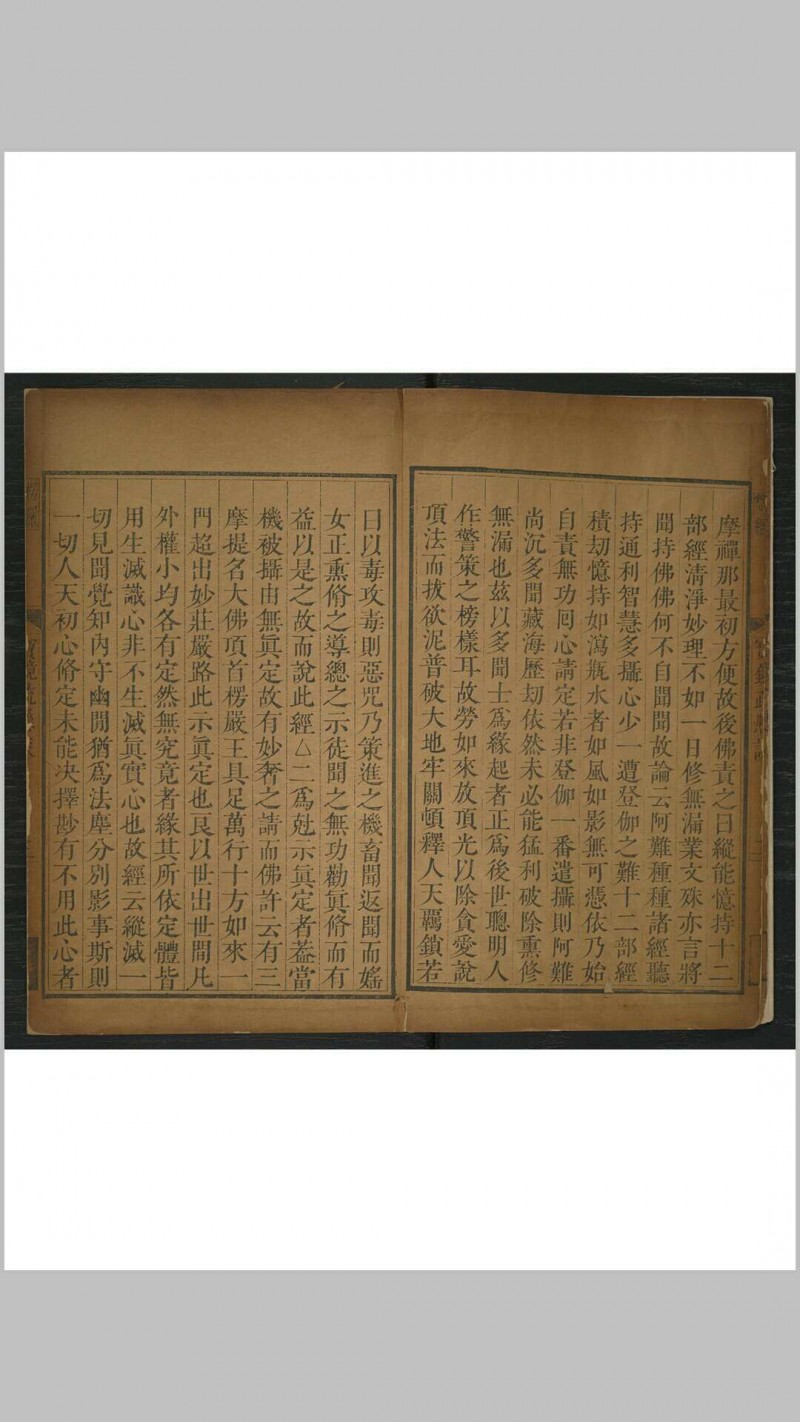 摩禪那最初方便故後佛責之曰縱能憶持十二
部經清淨妙理不如一日修無漏業文殊亦言將
聞持佛佛何不自聞聞故論云阿難種種諸經聽
持通利智慧多攝心少一遭登伽之難十二部經
積劫憶持如瀉瓶水者如風如影無可憑依乃始
自責無功囘心請定若非登伽一番遣攝則阿難
尚沉多聞藏海歷劫依然未必能猛利破除熏修
無漏也茲以多聞士爲緣起者正爲後世聰明人
作警策之榜樣耳故勞如來放頂光以除貪愛說
頂法而拔欲泥普破大地牢關頓釋人天羈鎖若
曰以毒攻毒則惡咒乃策進之機畜聞返聞而婬
女正熏脩之導總之示徒聞之無功勸眞脩而有
益以是之故而說此經△二爲尅示眞定者葢當
機被攝由無眞定故有妙奢之請而佛許云有三
摩提名大佛頂首楞嚴王具足萬行十方如來一
門超出妙莊嚴路此示眞定也良以世出世間凡
外權小均各有定然無究竟者緣其所依定體皆
用生滅識心非不生滅眞實心也故經云縱滅一
切見聞覺知內守幽閒猶爲法塵分別影事斯則
一切人天初心脩定未能決擇尠有不用此心者